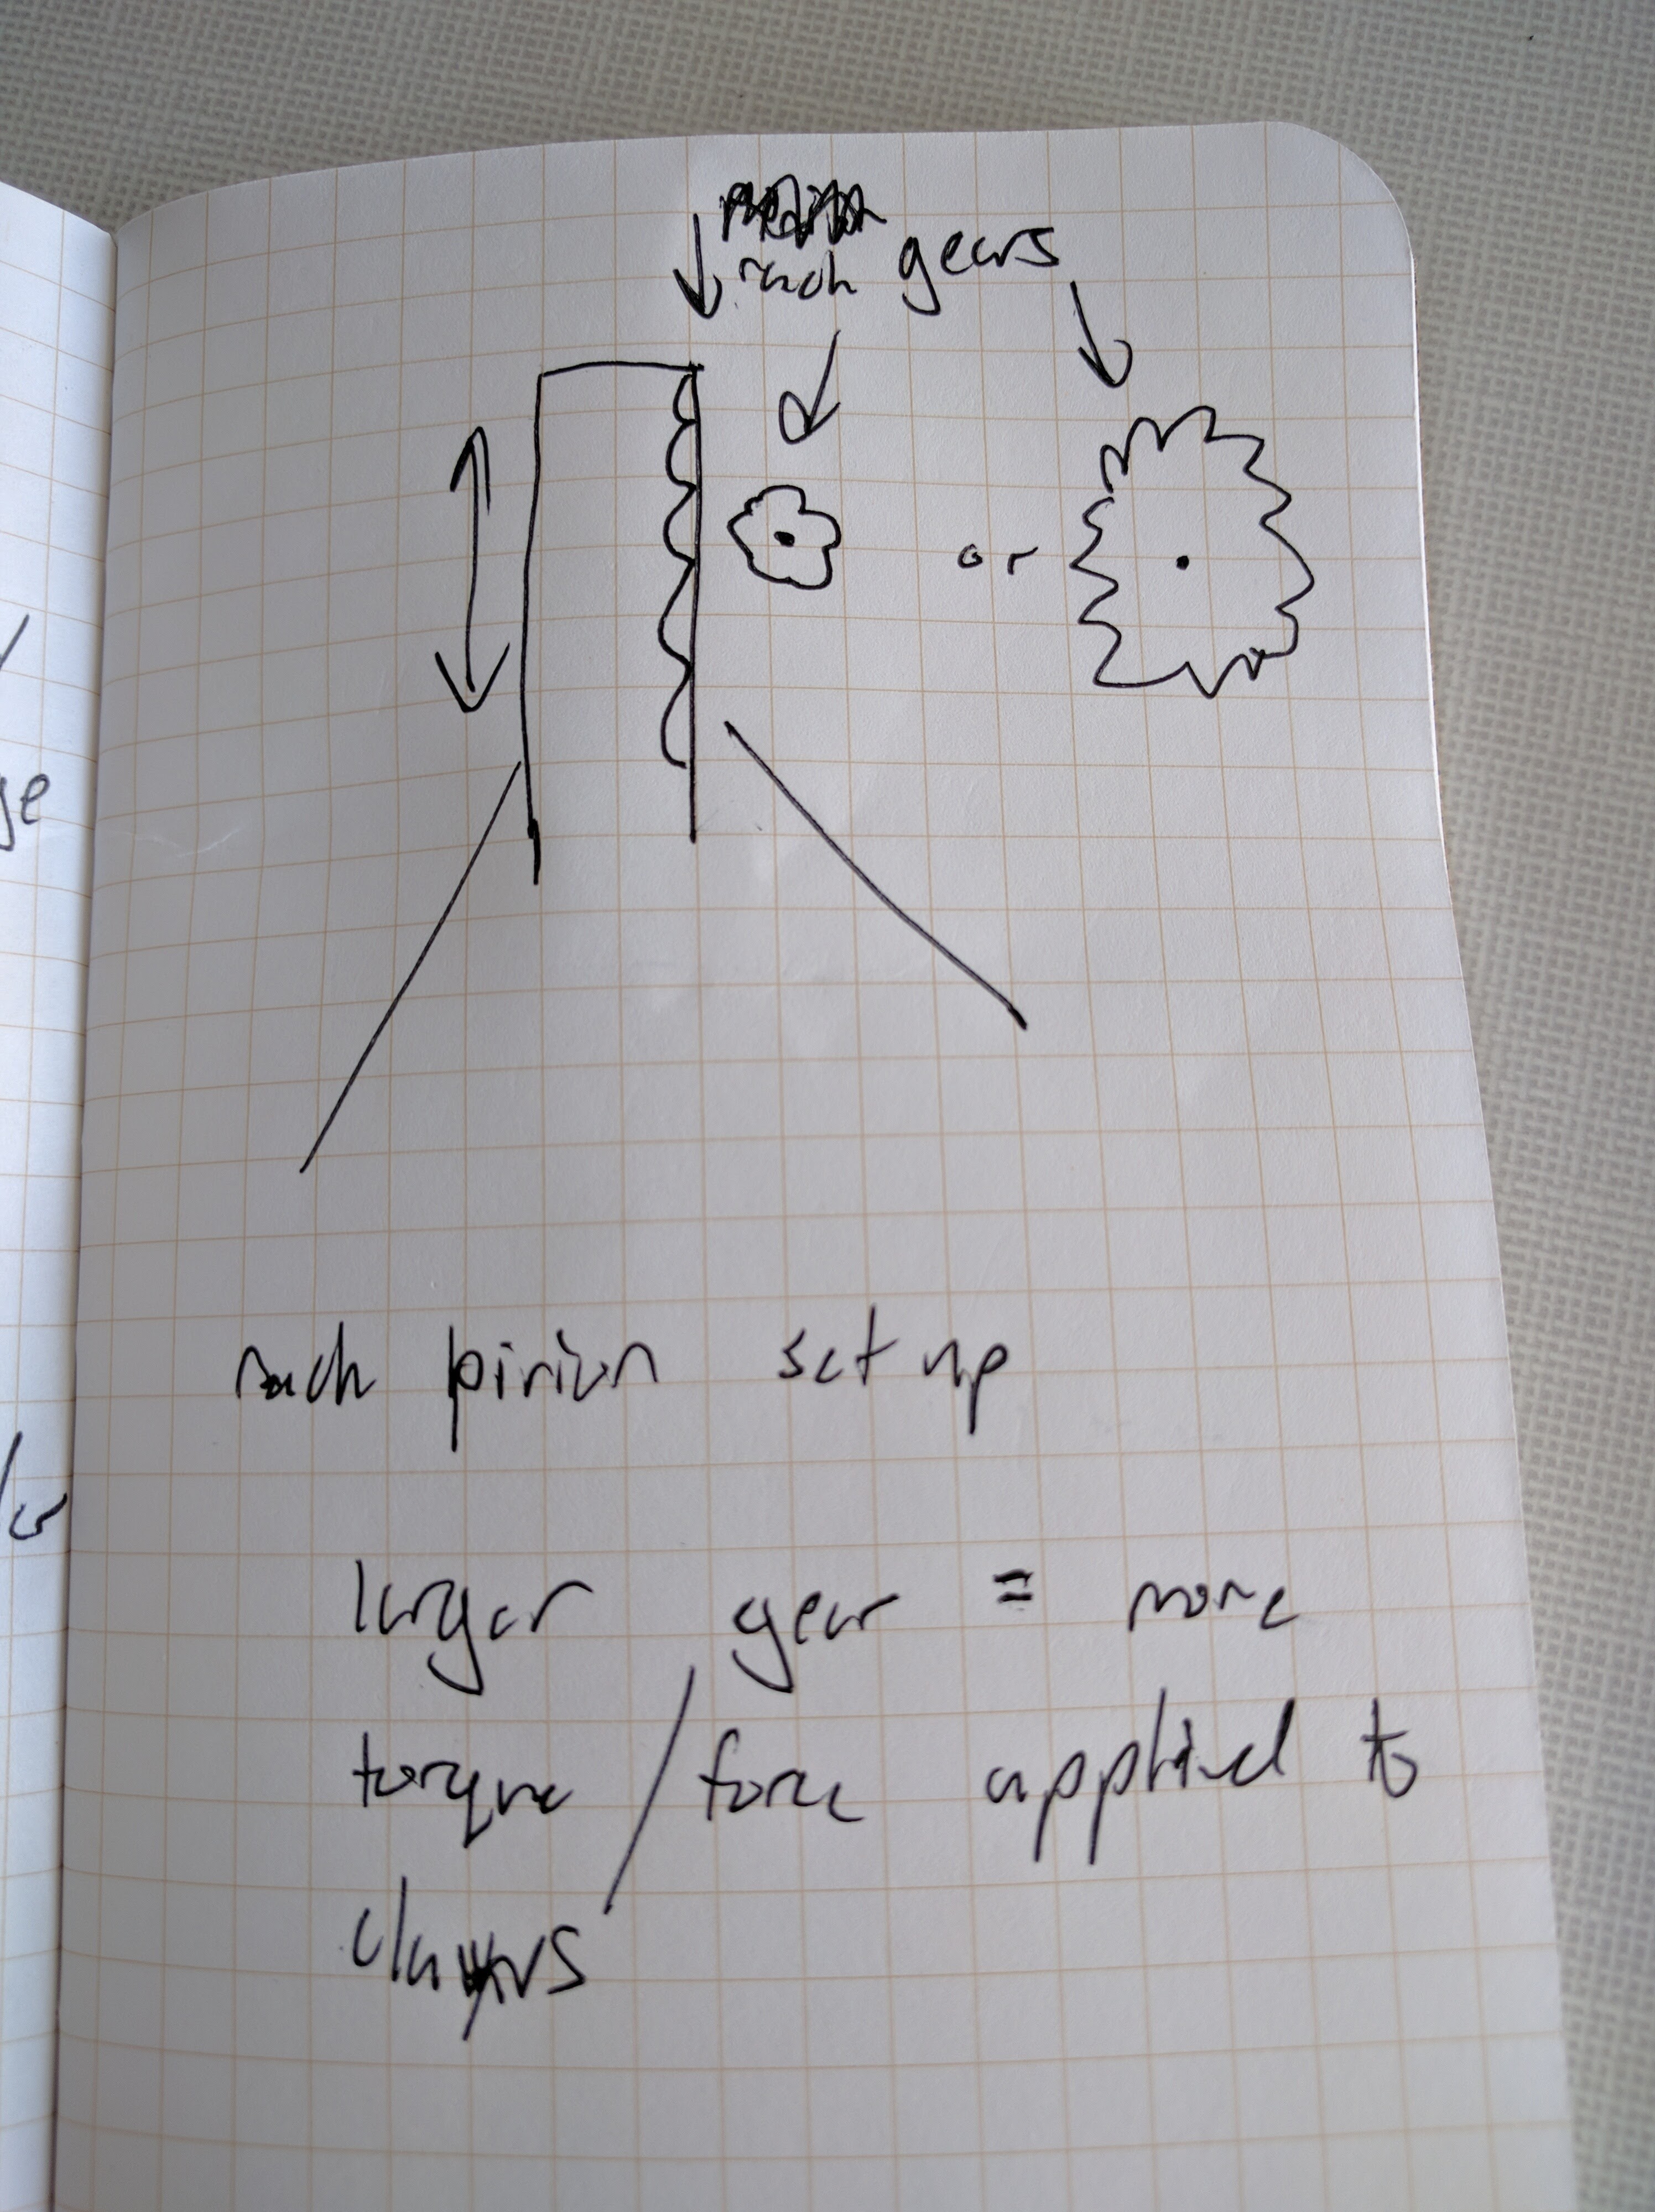 rack gears
or
rack pinion set up
larger gear = more
torque / force applied to
claws
ge